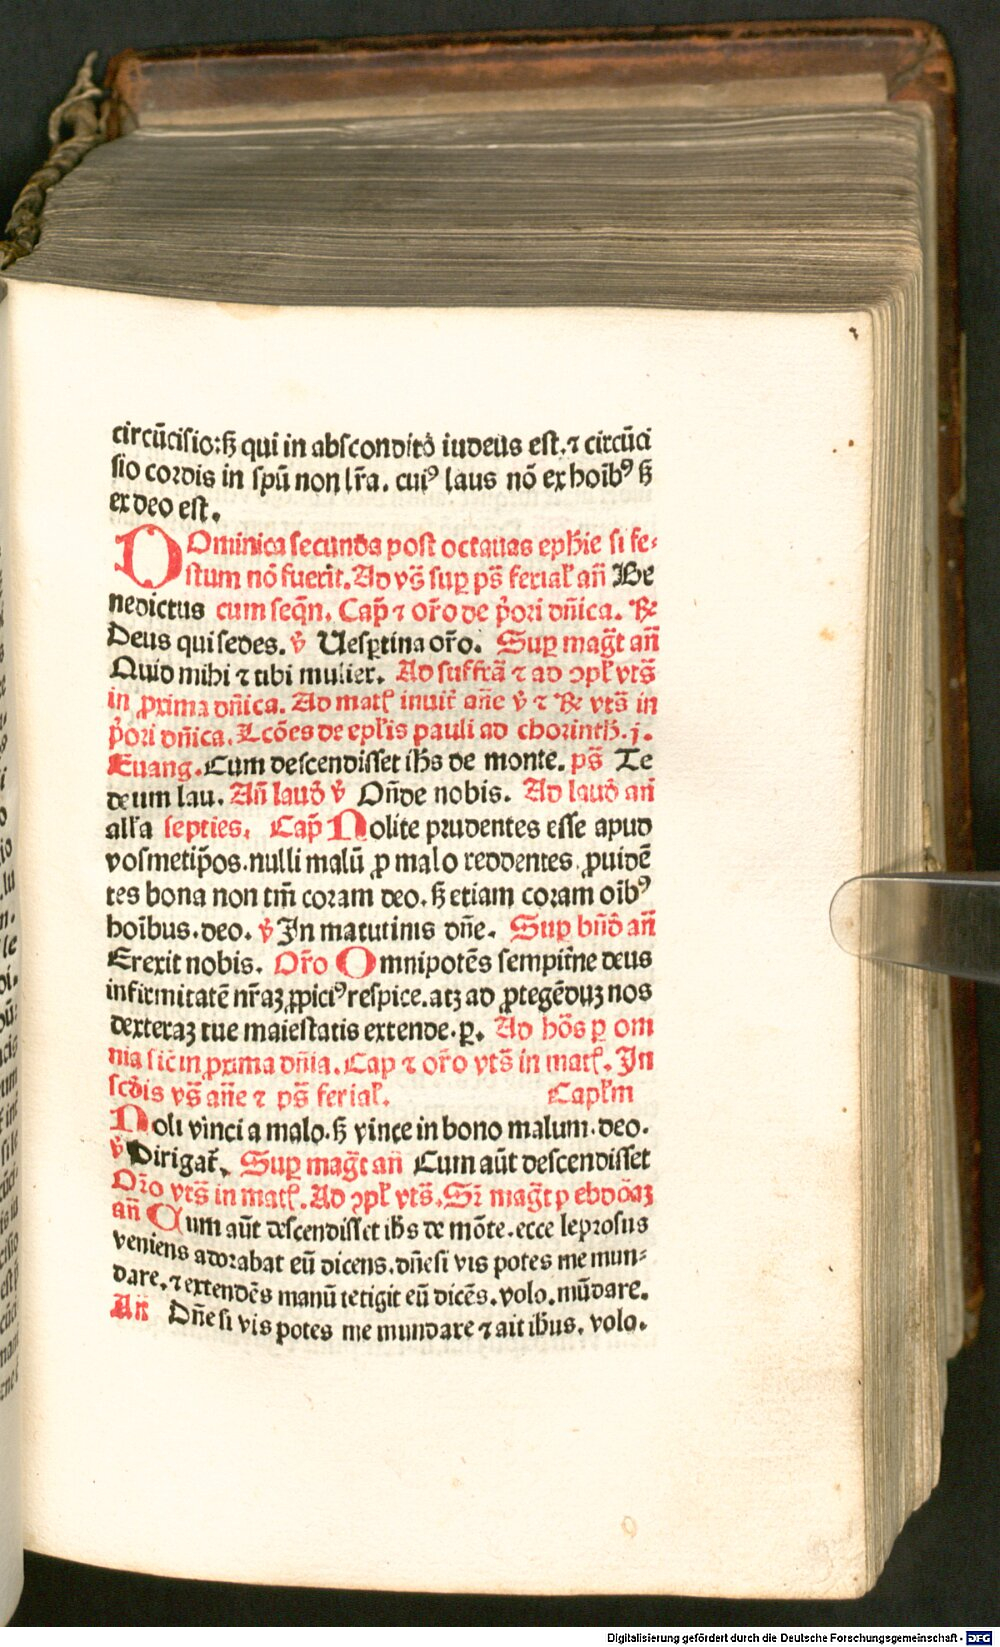 circūcisio:ẞ qui in abscondito᷑ iudeus est.⁊ circūci
sio cordis in spū non lr̄a. cuiꝰ laus nō ex hoībꝰ ẞ
ex deo est.
Dominica secunda post octauas ephīe si fe-
stum nō fuerit. Ad vs̄ sup̲ ps̄ ferial̕ an̄ Be
nedictus cum seqn̄. Cap̄ ⁊ or̄o de p̓ori dn̄ica. ℟
Deus qui sedes. ℣ Uesp̲tina or̄o. Sup̲ mag̅t an̄
Quid mihi ⁊ tibi mulier. Ad suffrā ⁊ ad ꝯpl̕ vts̄
in ꝓxima dn̄ica. Ad matꝭ inuit̕ an̄e ℣ ⁊ ℟ vts̄ in
p̓ori dn̄ica. Lcōes de epl̕is pauli ad chorinth̄. j.
Euang̅. Cum descendisset ih̄s de monte. ps̄ Te
deum lau. An̄ laud̕ ℣ On̄de nobis. Ad laud̕ an̄
all̕a septies. Cap̄ Nolite prudentes esse apud
vosmetip̄os. nulli malū ꝓ malo reddentes. ꝓuidē
tes bona non tm̄ coram deo. ẞ etiam coram oībꝰ
hoībus. deo. ℣ In matutinis dn̄e. Sup̲ bn̄d̕ an̄
Erexit nobis. Or̄o Omnipotēs sempit̕ne deus
infirmitatē nr̄aꝫ ꝓpiciꝰ respice. atꝫ ad ꝓtegēduꝫ nos
dexteraꝫ tue maiestatis extende. p̲. Ad hōs p̲ om
nia sic̄ in ꝓxima dn̄ia. Cap ⁊ or̄o vts̄ in matꝭ. In
scd̄is vs̄ an̄e ⁊ ps̄ ferial̕. Capl̕m
Noli vinci a malo. ẞ vince in bono malum. deo.
℣ Dirigat̕. Sup̲ mag̅t an̄ Cum aūt descendisset
Or̄o vts̄ in matꝭ. Ad ꝯpl̕ vts̄. Sr̄ mag̅t p̲ ebdōaꝫ
an̄ Cum aūt descendisset ih̄s de mōte. ecce leprosus
veniens adorabat eū dicens. dn̄e si vis potes me mun-
dare. ⁊ extendēs manū tetigit eū dicēs. volo. mūdare.
An̄ Dn̄e si vis potes me mundare ⁊ ait ih̄us. volo.
Digitalisierung gefördert durch die Deutsche Forschungsgemeinschaft - DFG